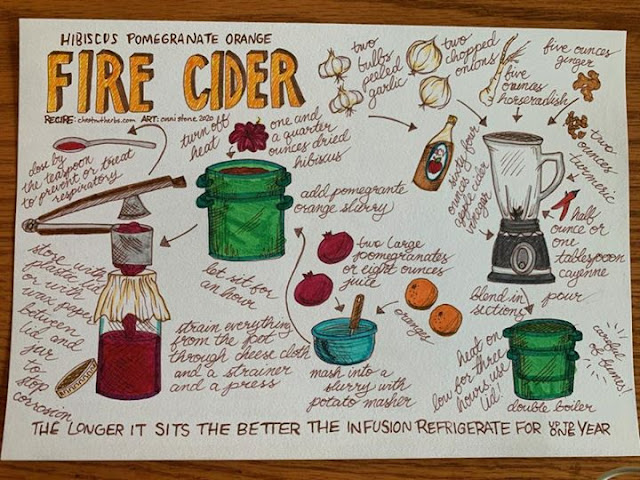 HIBISCUS POMEGRANATE ORANGE
FIRE CIDER
RECIPE: chestnutherbs.com ART: onni stone 2020
two
bulbs
peeled
garlic
two
chopped
onions
five
ounces
horseradish
five ounces
ginger
two
ounces
turmeric
half
ounce or
one
tablespoon
cayenne
sixty four
ounces
apple cider
vinegar
blend in
sections
pour
careful
of fumes!
double boiler
heat on
low for three
hours, use
lid!
turn off
heat
one and
a quarter
ounces dried
hibiscus
add pomegrante
orange slurry
two large
pomegranates
or eight ounces
juice
oranges
mash into a
slurry with
potato masher
let sit for
an hour
strain everything
from the pot
through cheese cloth
and a strainer
and a press
store with
plastic lid
or with
wax paper
between
lid and
jar
to
stop
corrosion
dose by
the teaspoon
to prevent or treat
respiratory
THE LONGER IT SITS THE BETTER THE INFUSION REFRIGERATE FOR UP TO ONE YEAR